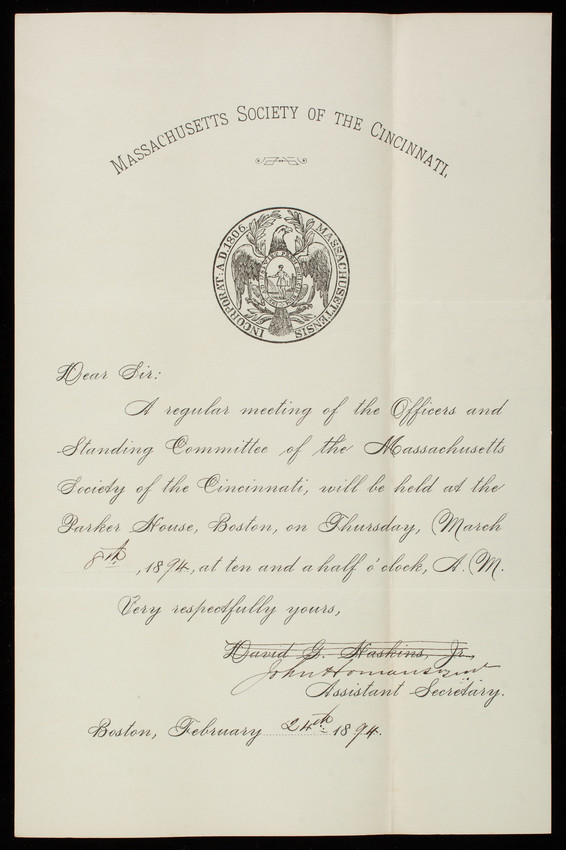 MASSACHUSETTS SOCIETY OF THE CINCINNATI,
INCORPORAT. A.D. 1806. MASSACHUSETTENSIS
Dear Sir:
A regular meeting of the Officers and
Standing Committee of the Massachusetts
Society of the Cincinnati, will be held at the
Parker House, Boston, on Thursday, March
8th, 1894, at ten and a half o'clock, A.M.
Very respectfully yours,
David G. Haskins, Jr.,
John Homans
Assistant Secretary.
Boston, February 24th 1894.